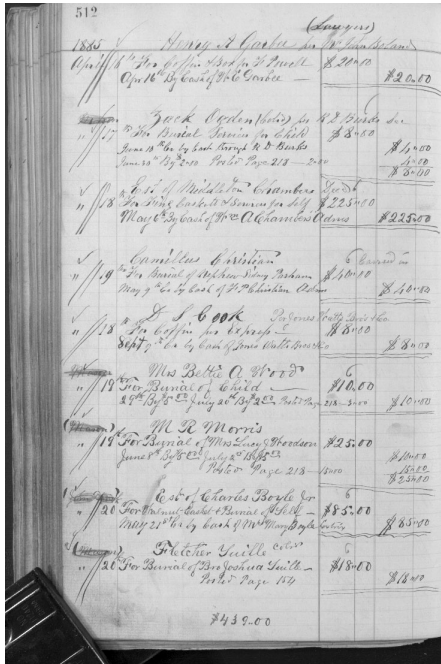 512
(Lawyers)
1885 Henry A Garbee for Wm John Boland
Apr 16th For Coffin & Box for F Powell $20.00
Apr 16th By Cash of H. C Garbee — $20.00
Zack Ogden (Cold) for R. D. Burks
" 17 For Burial Service for Child $8.00
June 13th Cr by Cash through R D Burks $4.00
June 20th By 2.00 Posted Page 218 — 2.00 4.00
$8.00
Est of Middleton Chambers Decd 6
" 18 For Casket & Services for Self $225.00
May 6th By Cash of Wm A Chambers Adms $225.00
Camillus Christian 6
" 19 For Burial of Nephew Sidney Parham $40.00
May 9th Cr by Cash of Christian Adms $40.00
D S Cook Pr Jones Watts Bros & Co
" 18 For Coffin per Express — $8.00
Sept 9th Cr by Cash of Jones Watts Bros & Co $8.00
Mrs Bettie A Wood 6
" 19th For Burial of Child — $10.00
29th By 5.00 July 20th By 2.00 Posted Page 218 — 3.00 $10.00
M R Morris
" 19th For Burial of Mrs Lucy Woodson $25.00
June 8th By 5.00 July By 5.00 $10.00
Posted Page 218 — 15.00 15.00
$25.00
Est of Charles Boyle Jr 6
" 20 For Walnut Casket & Burial of Self — $85.00
May 21st Cr by Cash of Mrs Mary Boyle $85.00
Fletcher Suille Cold 6
" 20 For Burial of Bro Joshua Suille — $18.00
Posted Page 154 $18.00
$439.00